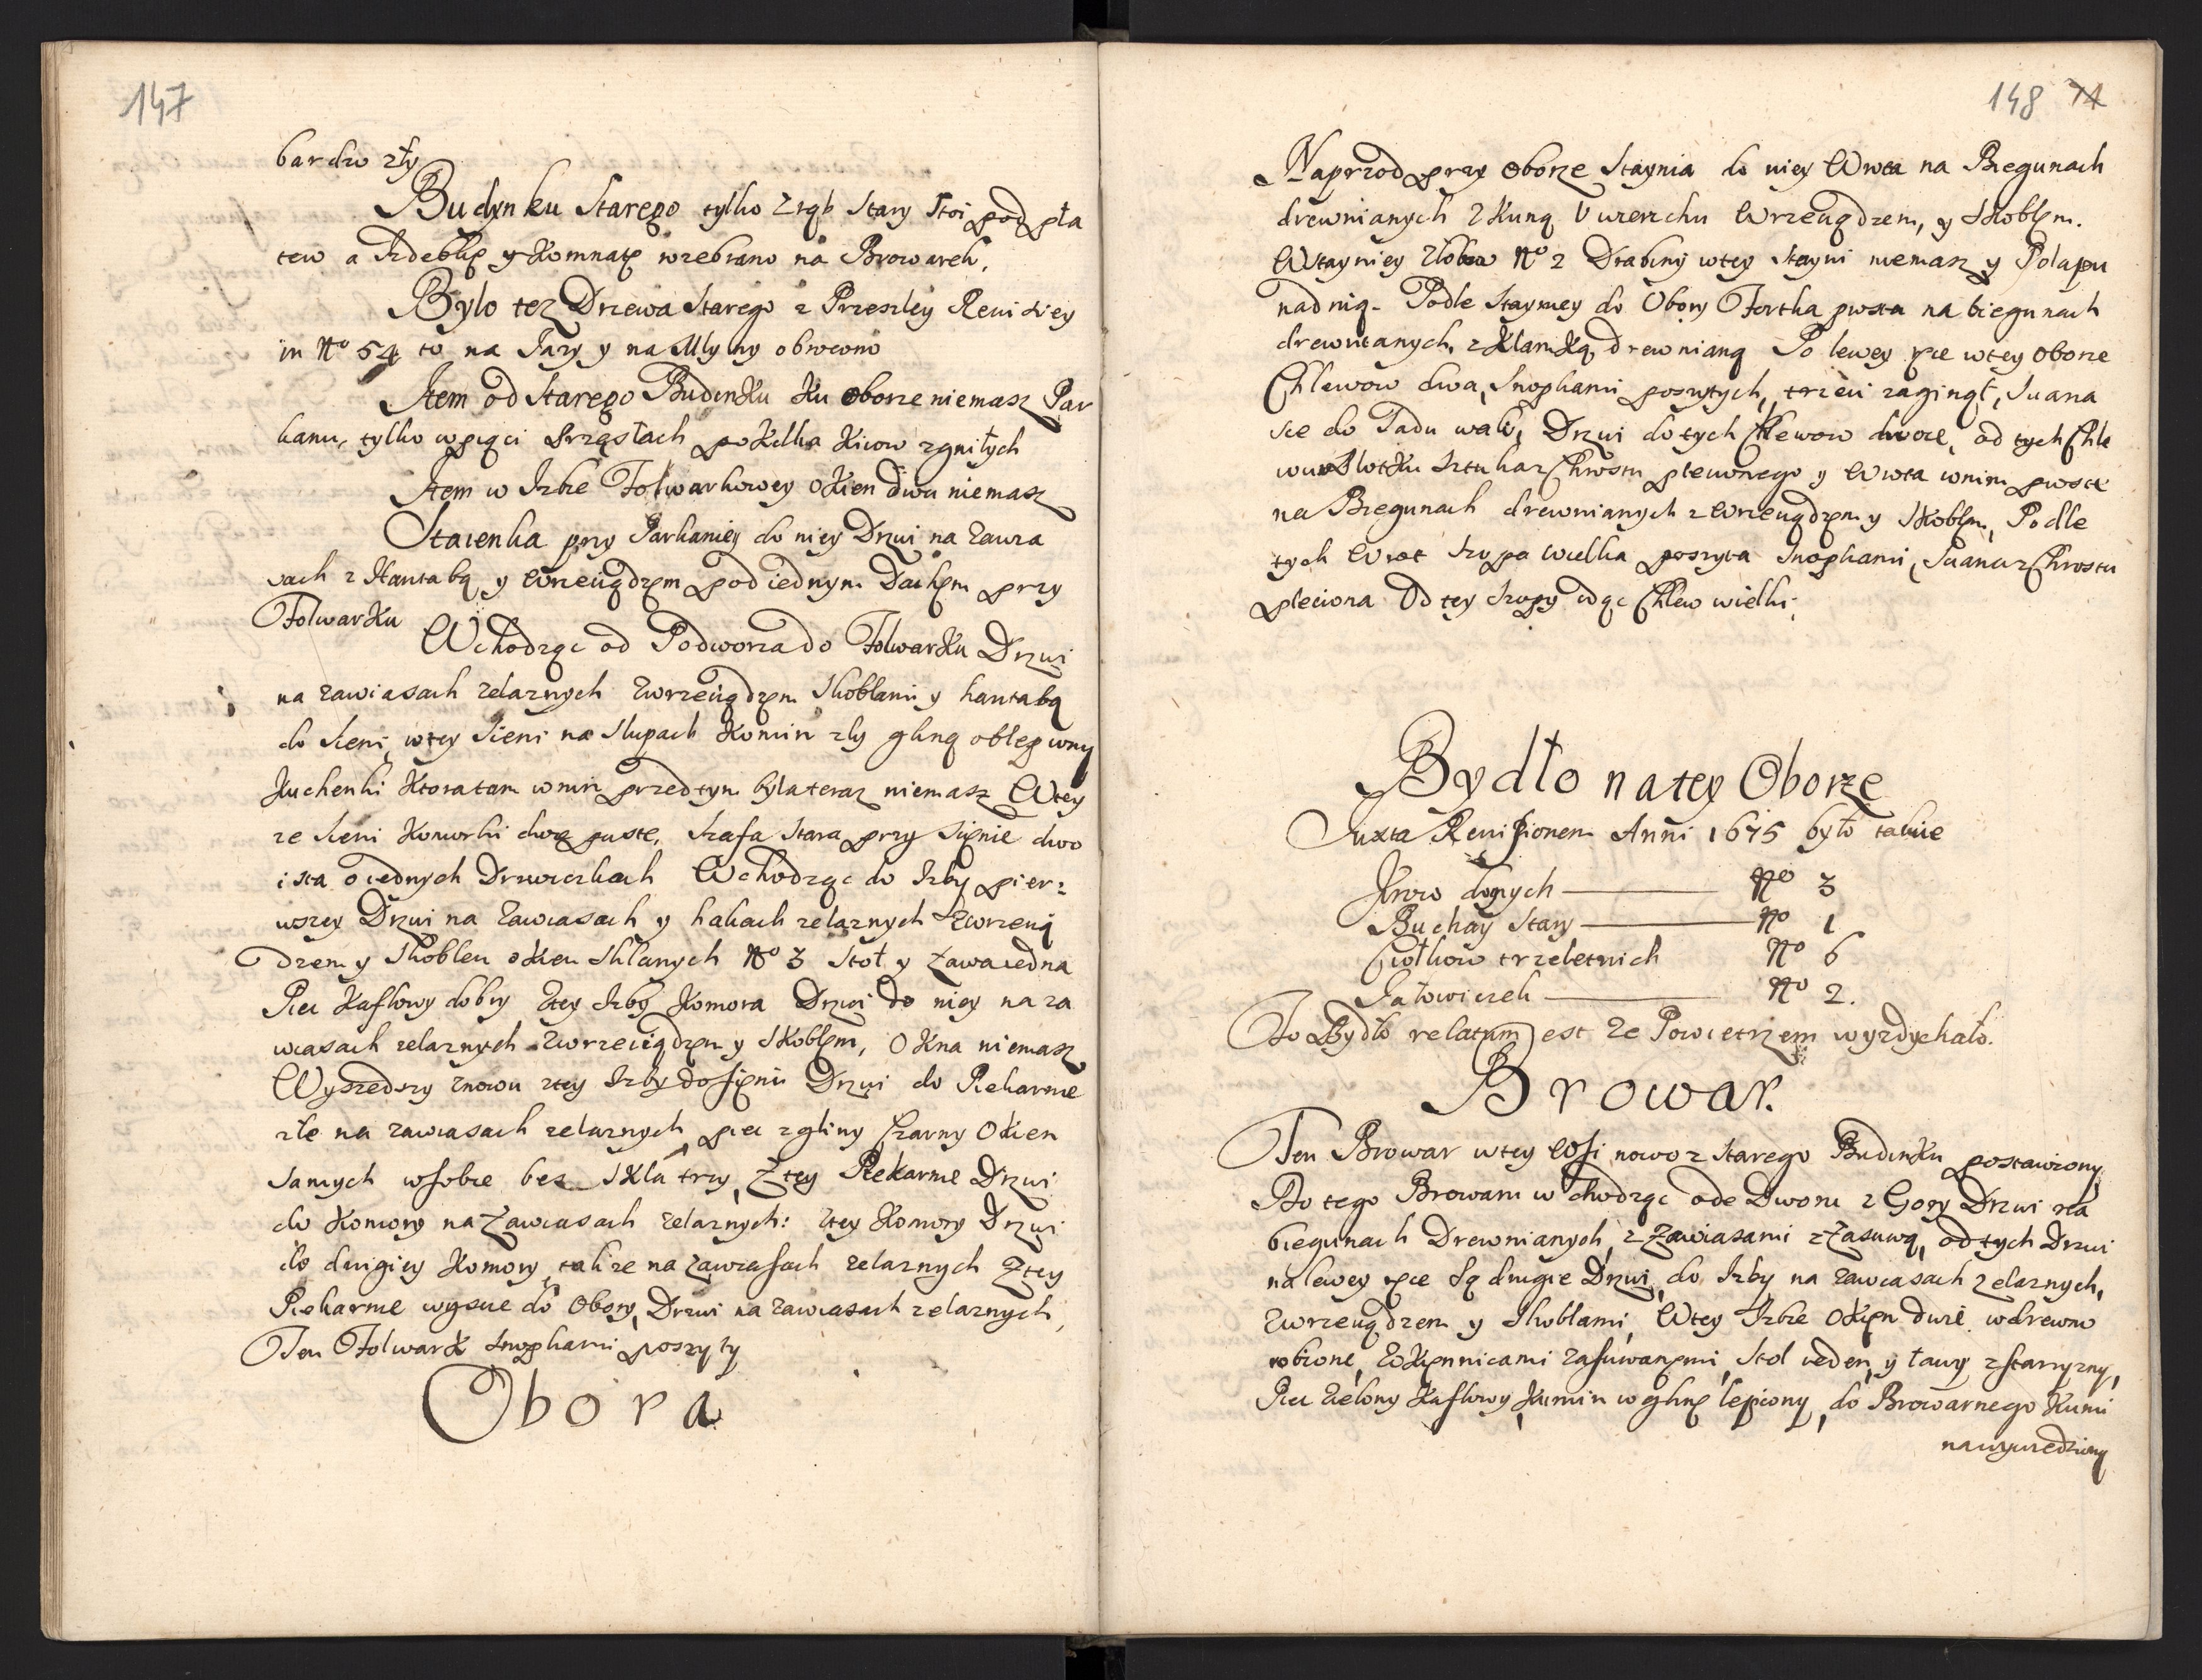 147
bardzo zły
Budynku Starego tylko Zrąb Stary Stoi pod pła
tew a Izdebkę y Komnatę rozebrano na Browarek,
Bylo tez Drzewa Starego z Przeszley Rewisiey
in No 54 to na Jazy y na Mlyny obrocono
Item od Starego Budinku ku oborze niemasz Par
kanu, tylko w pięci Przęsłach po kilka Kiiow zgniłych
Item w Izbie Folwarkowey okien dwu niemasz
Staienka przy Parkaniey do niey Drzwi na Zawia
sach z Hantabą y Wrzeciądzem pod iednym Dachem przy
Folwarku
Wchodząc od Podworza do Folwarku Drzwi
na zawiasach zelaznych Zwrzeciądzem Skoblami y hantabą
do Sieni, wtey Sieni na Slupach Komin zly gliną oblepiony
Kuchenki Ktora tam w nim przedtym byla teraz niemasz Wtey
ze Sieni Komorki dwie puste, Szafa Stara przy Sienie dwo
ista o iednych Drzwiczkach Wchodząc do Izby pier:
wszey Drzwi na Zawiasach y hakach zelaznych Zwrzecią
dzem y Skoblem okien Sklanych No 3 Stoł y Ława iedna
Piec Kaflowy dobry Ztey Izby Komora Drzwi do niey na za
wiasach zelaznych Zwrzeciądzem y Skoblem, Okna niemasz
Wyszedszy znowu ztey Izby do sieni Drzwi do Piekarnie
złe na zawiasach zelaznych, piec z gliny Czarny Okien
samych w sobie bez Skla trzy, Ztey Piekarnie Drzwi
do Komory na Zawiasach zelaznych: Ztey Komory Drzwi
do drugiey Komory także na zawiasach zelaznych Ztey
Piekarnie wyscie do Obory, Drzwi na zawiasach zelaznych,
Ten Folwark snopkami poszyty
Obora
148 74
Naprzod przy Oborze Staynia do niey Wrota na Biegunach
drewnianych z Kuną V wierzchu Wrzeciądzem, y Skoblem.
Wstayniey Złobow No 2 Drabiny wtey Stayni niemasz y Polapu
nad nią. Podle Stayniey do Obory Fortka prosta na biegunach
drewnianych, z Klamką drewnianą Po lewey ręce wtey Oborze
Chlewow dwa, Snopkami poszytych, trzeci zaginął, Sciana
sie do Sadu wali, Drzwi do tych Chlewow dwoie, od tych Chle
wuw Plotku sztuka z Chrostu plecionego y Wrota w nim proste
na Biegunach drewnianych z Wrzeciądzem y Skoblem, Podle
tych Wrot Szopa Wielka poszyta Snopkami, Sciana z Chrostu
pleciona Od tey Szopy idąc Chlew wielki,
Bydło na tey Oborze
Juxta Revisionem Anni 1675 było takie
Krow doynych No 3
Buchay Stary No 1
Ciołkow trzeletnich No 6
Jałowiczek No 2.
To Bydło relatum est Ze Powietrzem wyzdychało.
Browar.
Ten Browar wtey Wsi nowo z Starego Budinku postawiony,
Do tego Browaru wchodząc ode Dworu z Gory Drzwi na
biegunach Drewnianych, z Zawiasami z Zasuwą, od tych Drzwi
na lewey ręce Są drugie Drzwi, do Izby na Zawiasach zelaznych,
Zwrzeciądzem y Skoblami, Wtey Izbie Okien dwie w drewno
robione, Zokiennicami zasuwanemi, Stol ieden, y ławy z starzyzny,
Piec Zielony Kaflowy, Kumin w glinę lepiony, do Browarnego Kumi
na wywiedziony